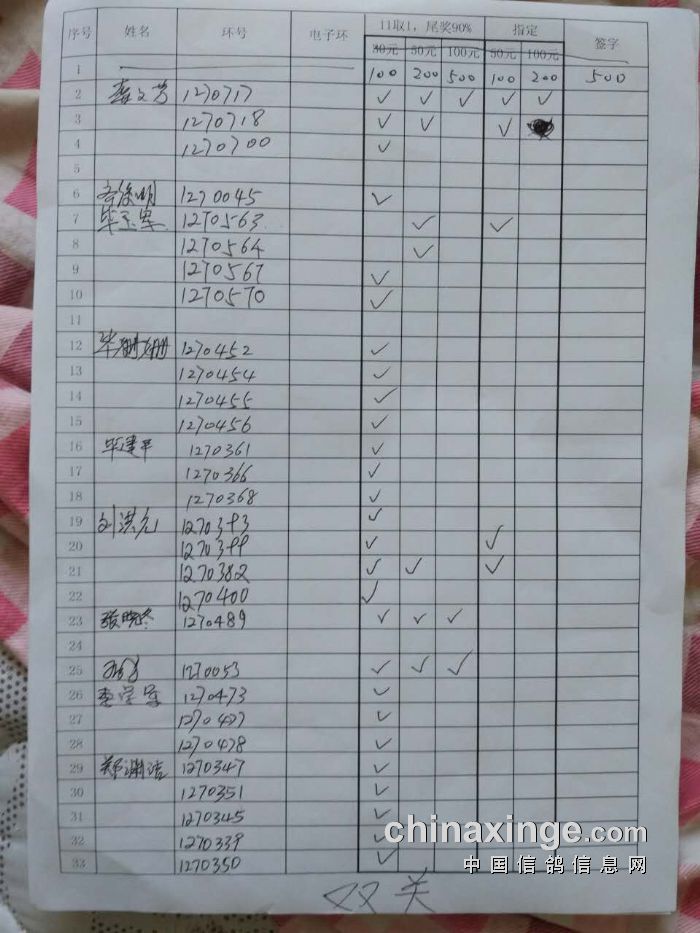 序号 姓名 环号 电子环 11取1，尾奖90% 指定 签字
30元 50元 100元 50元 100元
1 100 200 500 100 200 500
2 李文芳 1270717 ✓ ✓ ✓ ✓ ✓
3 1270718 ✓ ✓ ✓
4 1270700 ✓
5
6 1270045 ✓
7 毕玉军 1270563 ✓ ✓
8 1270564 ✓
9 1270567 ✓
10 1270570 ✓
11
12 1270452 ✓
13 1270454 ✓
14 1270455 ✓
15 1270456 ✓
16 毕建平 1270361 ✓
17 1270366 ✓
18 1270368 ✓
19 刘洪元 1270393 ✓
20 1270399 ✓ ✓
21 1270382 ✓ ✓ ✓
22 1270400 ✓
23 张晓冬 1270489 ✓ ✓ ✓
24
25 1270053 ✓ ✓ ✓
26 李学军 1270473 ✓
27 1270477 ✓
28 1270478 ✓
29 郑渊洁 1270347 ✓
30 1270351 ✓
31 1270345 ✓
32 1270339 ✓
33 1270350 ✓
双关
chinaxinge.com
中国信鸽信息网